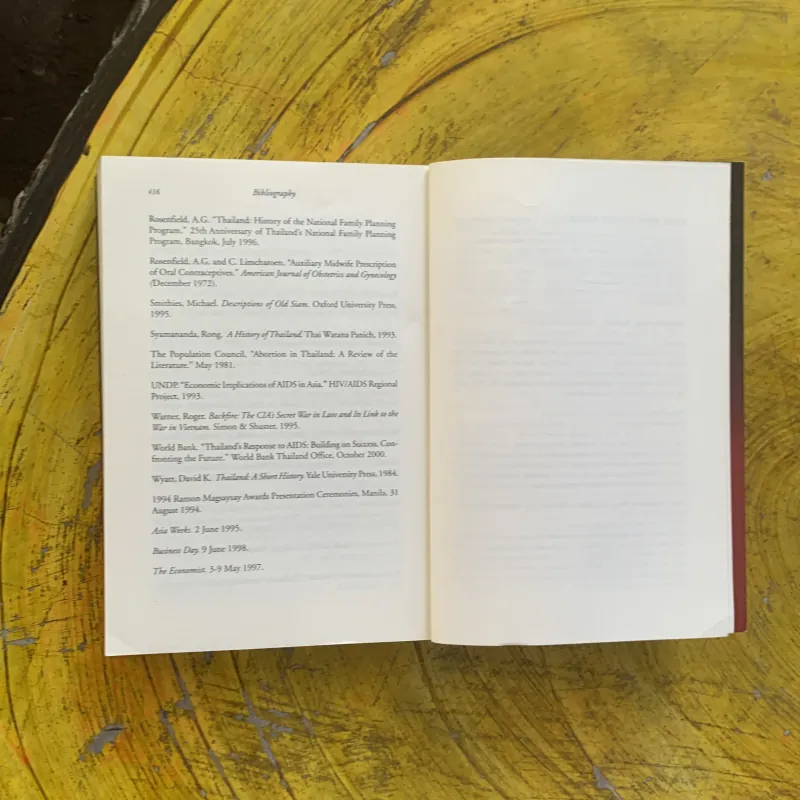 436 Bibliography
Rosenfield, A.G. "Thailand: History of the National Family Planning
Program." 25th Anniversary of Thailand's National Family Planning
Program, Bangkok, July 1996.
Rosenfield, A.G. and C. Limcharoen. "Auxiliary Midwife Prescription
of Oral Contraceptives." American Journal of Obstetrics and Gynecology
(December 1972).
Smithies, Michael. Descriptions of Old Siam. Oxford University Press,
1995.
Syamananda, Rong. A History of Thailand. Thai Watana Panich, 1993.
The Population Council, "Abortion in Thailand: A Review of the
Literature." May 1981.
UNDP. "Economic Implications of AIDS in Asia." HIV/AIDS Regional
Project, 1993.
Warner, Roger. Backfire: The CIA's Secret War in Laos and Its Link to the
War in Vietnam. Simon & Shuster, 1995.
World Bank. "Thailand's Response to AIDS: Building on Success, Con-
fronting the Future." World Bank Thailand Office, October 2000.
Wyatt, David K. Thailand: A Short History. Yale University Press, 1984.
1994 Ramon Magsaysay Awards Presentation Ceremonies, Manila, 31
August 1994.
Asia Weeks. 2 June 1995.
Business Day. 9 June 1998.
The Economist. 3-9 May 1997.